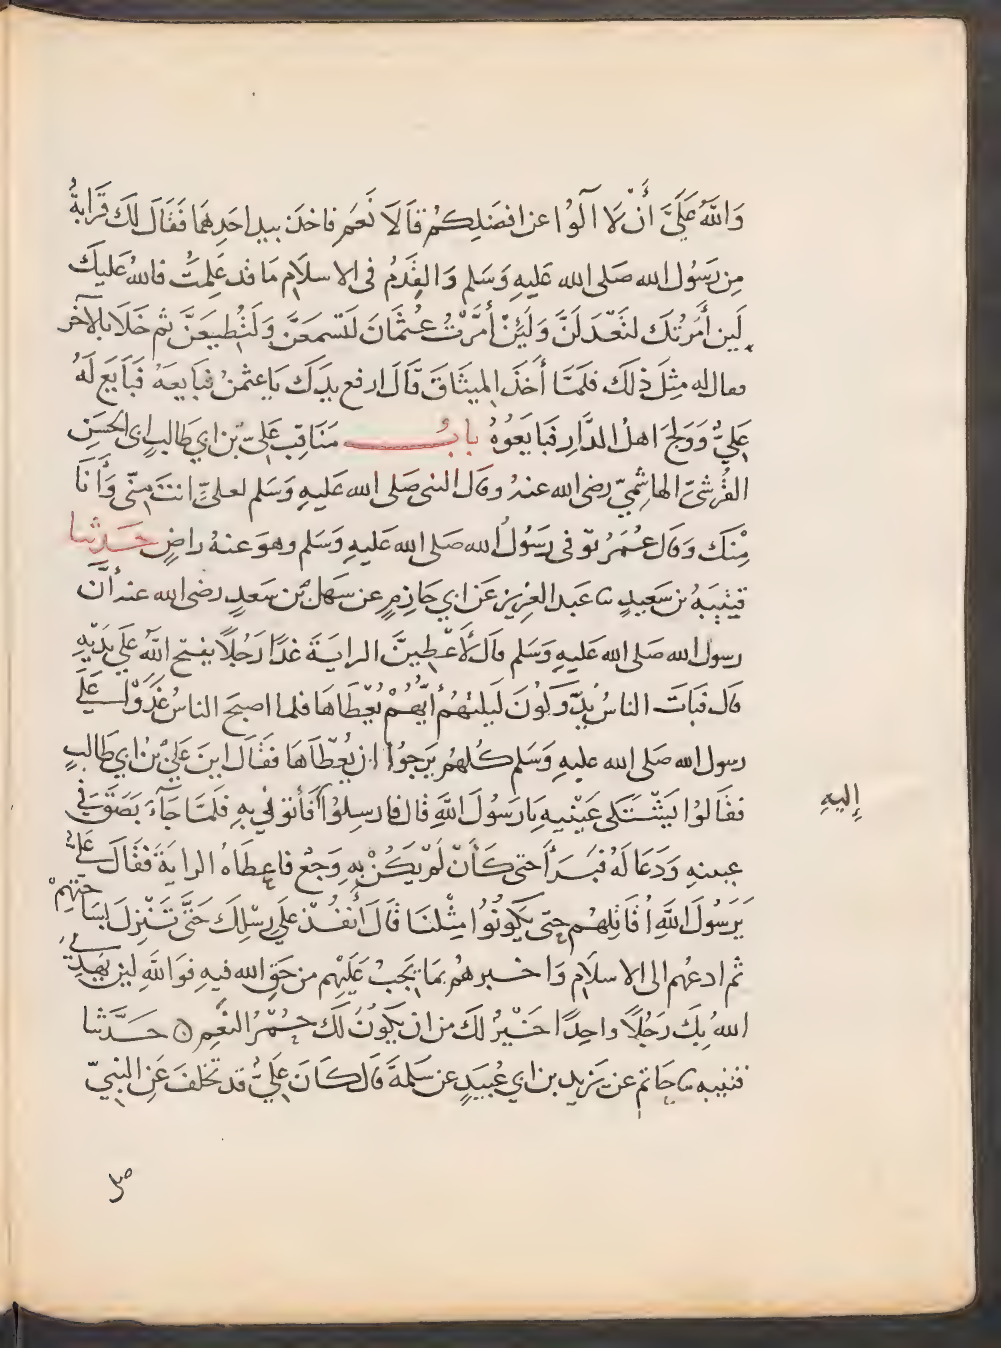 وَاللهُ عَلَيَّ أَنْ لَا آلُوَا عن افضَلِكُمْ قَالَا نَعَم فاخذَ بيدِ احَدِهِمَا فَقَالَ لَكَ قَرَابَةُ
مِن رَسُول الله صَلى الله عَليهِ وَسَلم وَالقِدَمُ فى الاسلَامِ مَا قد عَلِمتَ فاللهُ عَليكَ
لَين أمَّرتُكَ لتَعْدِلَنَّ وَلَئِنْ أَمَّرْتُ عُثمَانَ لَتَسمعَنَّ وَلَتُطِيعَنَّ ثم خَلَا بالآخَر
فقال له مِثلَ ذلكَ فلمَّا أَخَذَ الميثَاقَ قَالَ ارفع يدَكَ يَا عثمنُ فبَايَعهُ فَبَايَع لَهُ
عَليُّ وَوَلجَ اهلُ الدَّارِ فَبَايَعُوهُ بابُ مَنَاقِبِ عَلِيِّ بْنِ ابي طَالبٍ ابى الحسَنِ
القُرَشيّ الهاشِميّ رضى الله عنهُ وقال النبى صَلى الله عَليهِ وَسَلم لعليٍّ انتَ مِنّى وَأَنَا
مِنْكَ وَقال عُمَرُ توفى رَسُولُ الله صَلى الله عَليهِ وَسَلم وهوَ عنهُ راضٍ حَدثنا
قتيْبَهُ بن سَعيدٍ ثنا عَبد العزيز عَن ابي حَازمٍ عن سَهل بْن سَعدٍ رضى الله عنه أنَّ
رسولَ الله صَلى الله عَليهِ وَسَلم قال لَأُعْطِيَنَّ الرايَةَ غدًا رَجُلًا يفتح اللهُ عَلَى يَدَيْهِ
قال فبَاتَ الناسُ يَدُوكُونَ لَيلتَهُم أيُّهُمْ يُعْطَاهَا فلما اصبحَ الناسُ غَدَوْا عَلَى
رسول الله صَلى الله عليهِ وَسَلم كُلهُم يَرجُوا ان يُعْطَاهَا فَقَالَ اينَ عَليُّ بْنُ ابي طَالبٍ
فقَالُوا يَشْتَكى عَيْنيهِ يَا رَسُولَ اللَّهِ قال فارسِلُوا فأتونى بِهِ فَلمَّا جَآءَ بَصَقَ فِى
إِليهِ
عينيهِ وَدَعَا لَهُ فبَرَأَ حَتى كَأَنْ لَم يَكُنْ بِهِ وَجَعٌ فاعطَاهُ الرايَةَ فَقَالَ عَليُّ
يَرَسُولَ اللَّهِ أُقَاتِلهُم حتى يَكونُوا مِثْلنَا قَالَ أُنفُذْ عَلَى رِسْلِكَ حَتَّى تَنْزِلَ بسَاحتِهِمْ
ثم ادعُهم الى الاسلَامِ وَاخبرهُم بمَا يَجبُ عَلَيْهِم من حَقِ الله فيهِ فوَاللَّهِ لين يَهدِيَ
اللهُ بِكَ رَجُلًا واحِدًا خَيْرٌ لكَ من ان يَكُونَ لَكَ حُمْرُ النَّعَمِ حَدَّثنا
قتيبه ثنا حَاتم عن يَزيد بن ابي عُبَيدٍ عن سَلمَةَ قال كَانَ عَليُّ قد تخلفَ عَنِ النبيّ
صلى